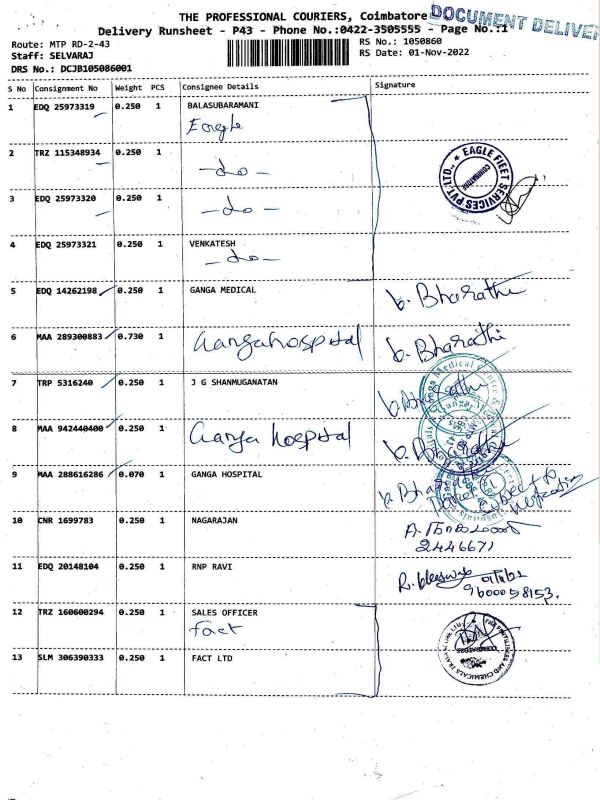 THE PROFESSIONAL COURIERS, Coimbatore
DOCUMENT DELIVER
Delivery Runsheet - P43 - Phone No.:0422-3505555 - Page No.:1
Route: MTP RD-2-43
RS No.: 1050860
Staff: SELVARAJ
RS Date: 01-Nov-2022
DRS No.: DCJB105086001
S No Consignment No Weight PCS Consignee Details Signature
1 EDQ 25973319 0.250 1 BALASUBARAMANI
Eagle
2 TRZ 115348934 0.250 1 -do-
EAGLE FLEET SERVICES PVT.LTD.,
COIMBATORE
3 EDQ 25973320 0.250 1 -do-
4 EDQ 25973321 0.250 1 VENKATESH
-do-
5 EDQ 14262198 0.250 1 GANGA MEDICAL b. Bharathi
6 MAA 289300883 0.730 1 Ganga hospital b. Bharathi
7 TRP 5316240 0.250 1 J G SHANMUGANATAN b. Bharathi
Ganga Medical Centre &
8 MAA 942440400 0.250 1 Ganga hospital b. Bharathi
9 MAA 288616286 0.070 1 GANGA HOSPITAL b. Bharathi
Subject to
10 CNR 1699783 0.250 1 NAGARAJAN
2446671
11 EDQ 20148104 0.250 1 RNP RAVI
9600058153.
12 TRZ 160600294 0.250 1 SALES OFFICER
fact
13 SLM 306390333 0.250 1 FACT LTD